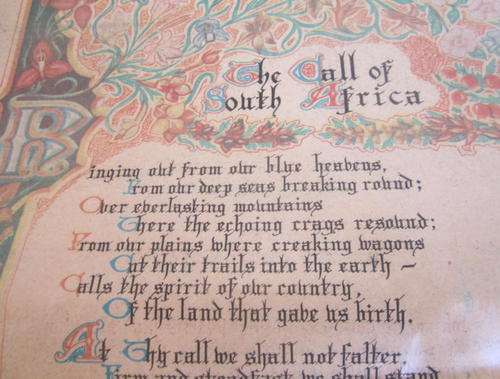 The Call of
South Africa
Ringing out from our blue heavens,
From our deep seas breaking round;
Over everlasting mountains
Where the echoing crags resound;
From our plains where creaking wagons
Cut their trails into the earth –
Calls the spirit of our country,
Of the land that gave us birth.
At Thy call we shall not falter,
Firm and steadfast we shall stand